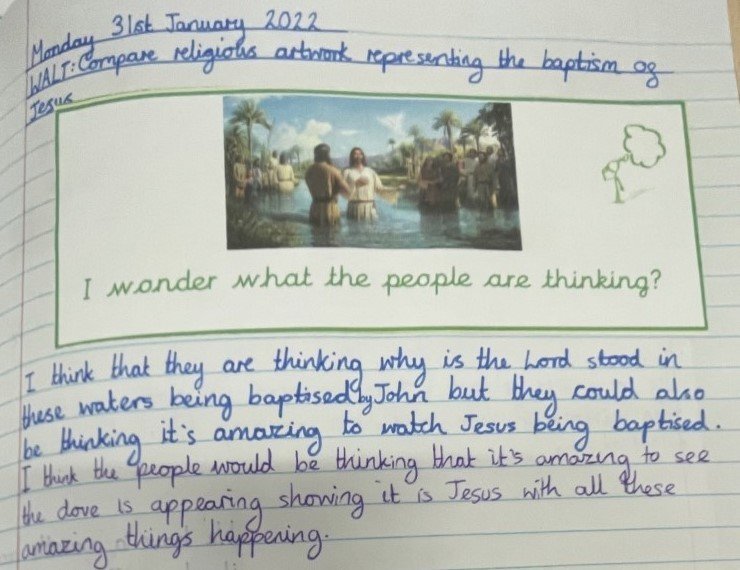 Monday 31st January 2022
WALT: Compare religious artwork representing the baptism of
Jesus
I wonder what the people are thinking?
I think that they are thinking why is the Lord stood in
these waters being baptised by John but they could also
be thinking it's amazing to watch Jesus being baptised.
I think the people would be thinking that it's amazing to see
the dove is appearing showing it is Jesus with all these
amazing things happening.